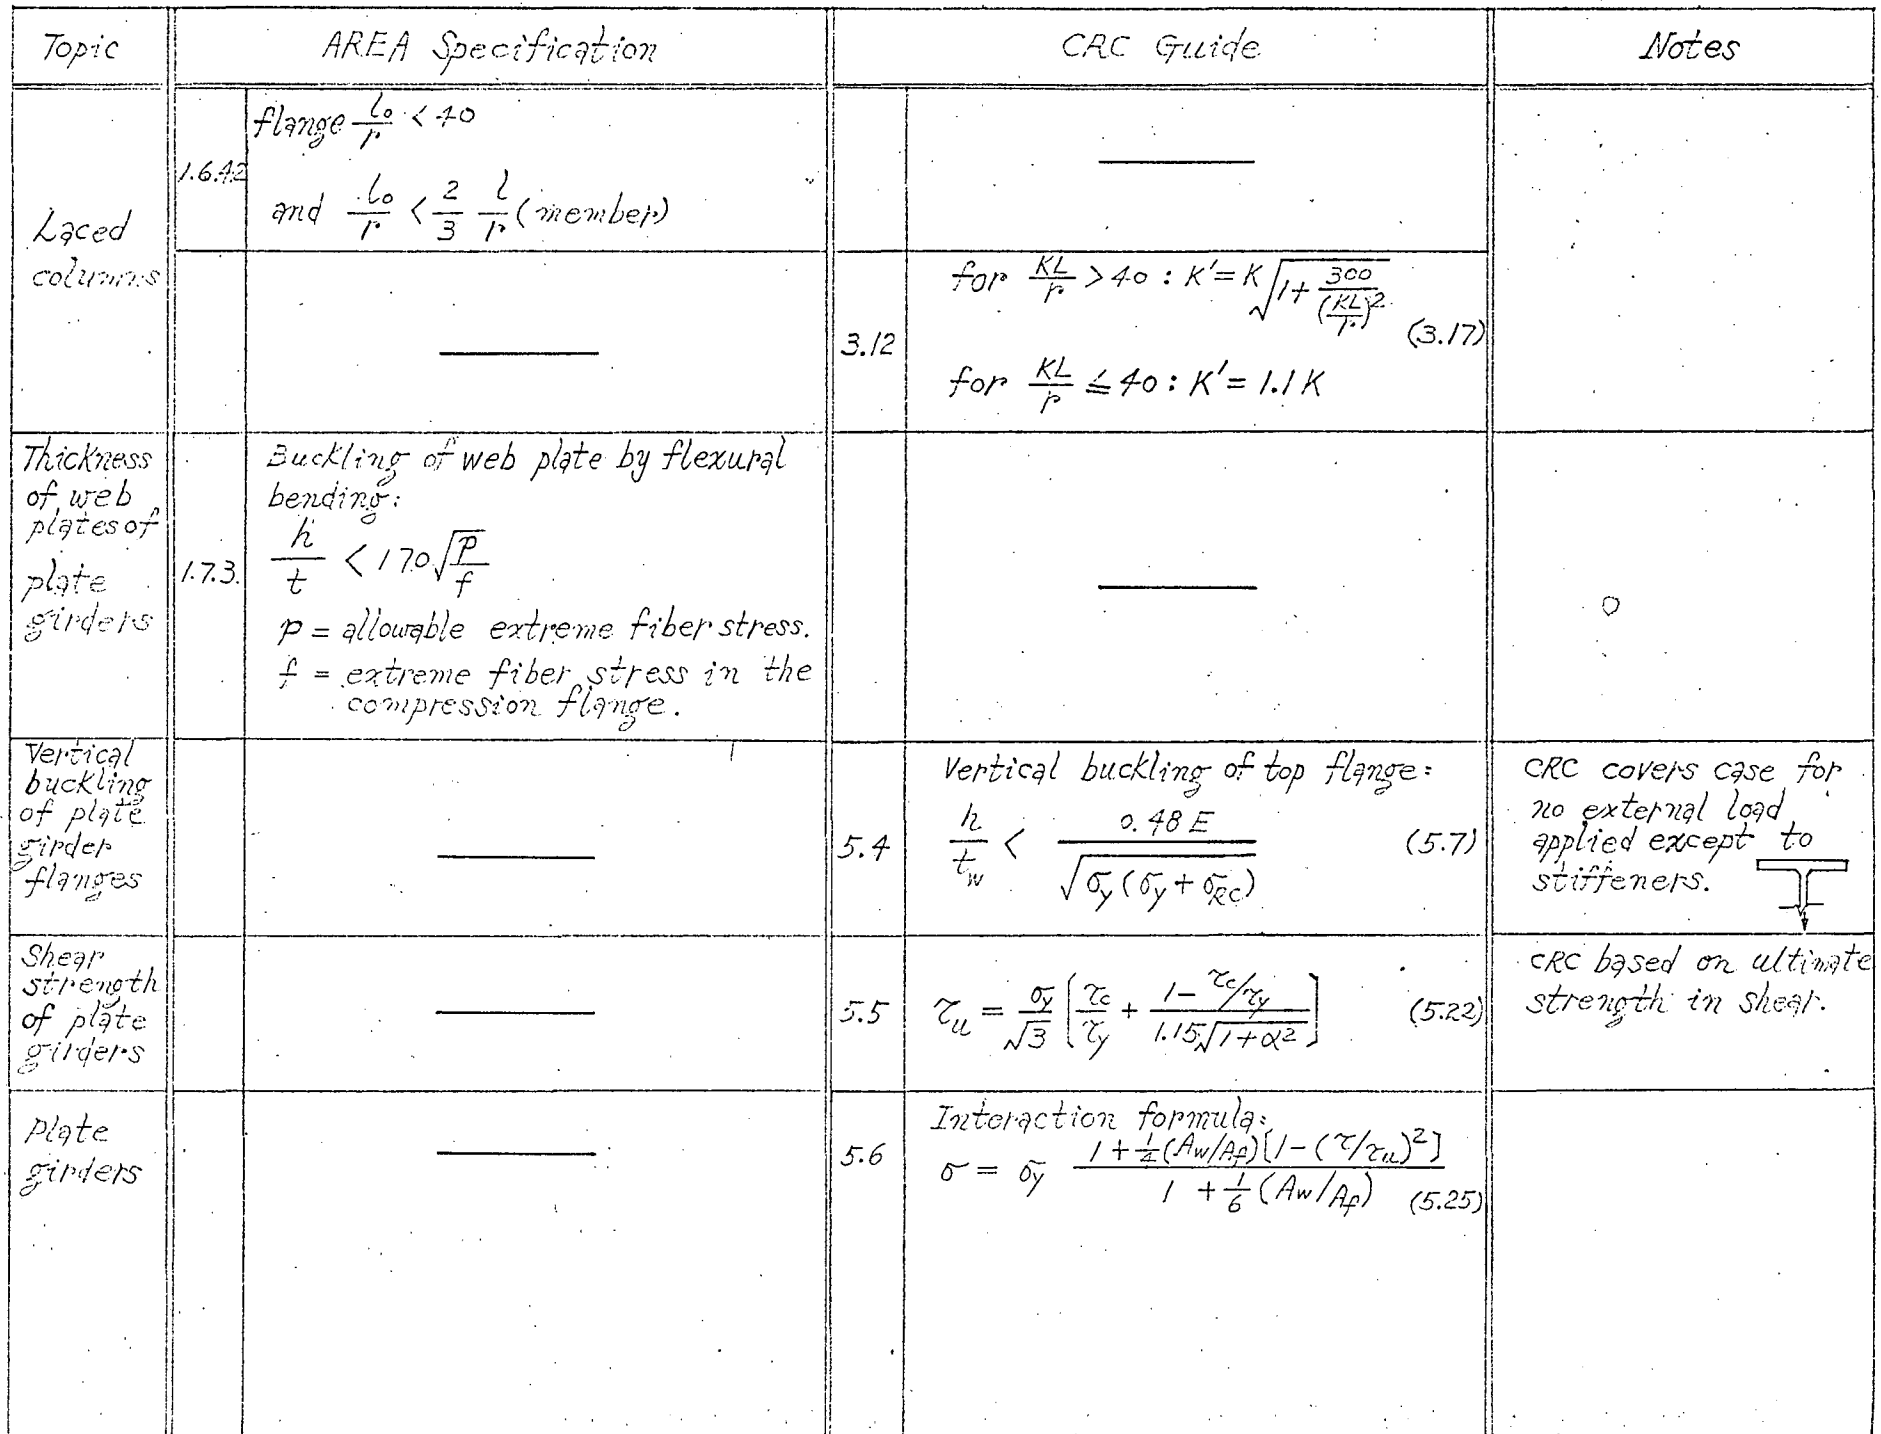 Topic
AREA Specification
CRC Guide
Notes
Laced
columns
1.6.42
flange l₀/r < 40
and l₀/r < 2/3 l/r (member)
3.12
for KL/r > 40 : K' = K√(1 + 300/(KL/r)²)
(3.17)
for KL/r ≦ 40 : K' = 1.1 K
Thickness
of web
plates of
plate
girders
1.7.3.
Buckling of web plate by flexural
bending:
h/t < 170 √(p/f)
p = allowable extreme fiber stress.
f = extreme fiber stress in the
compression flange.
Vertical
buckling
of plate
girder
flanges
5.4
Vertical buckling of top flange:
h/t_w < 0.48 E/√(σ_y (σ_y + σ_RC))
(5.7)
CRC covers case for
no external load
applied except to
stiffeners.
Shear
strength
of plate
girders
5.5
τ_u = σ_y/√3 [τ_c/τ_y + (1 - τ_c/τ_y)/(1.15√(1+α²))]
(5.22)
CRC based on ultimate
strength in shear.
Plate
girders
5.6
Interaction formula:
σ = σ_y (1 + 1/4 (Aw/Af) [1 - (τ/τ_u)²])/(1 + 1/6 (Aw/Af))
(5.25)